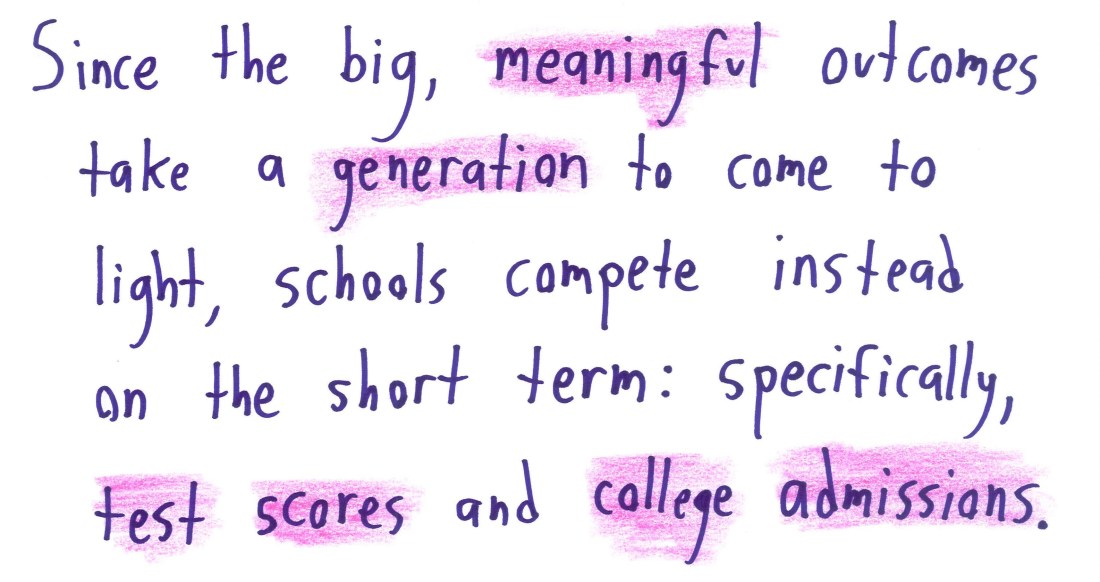 Since the big, meaningful outcomes
take a generation to come to
light, schools compete instead
on the short term: specifically,
test scores and college admissions.